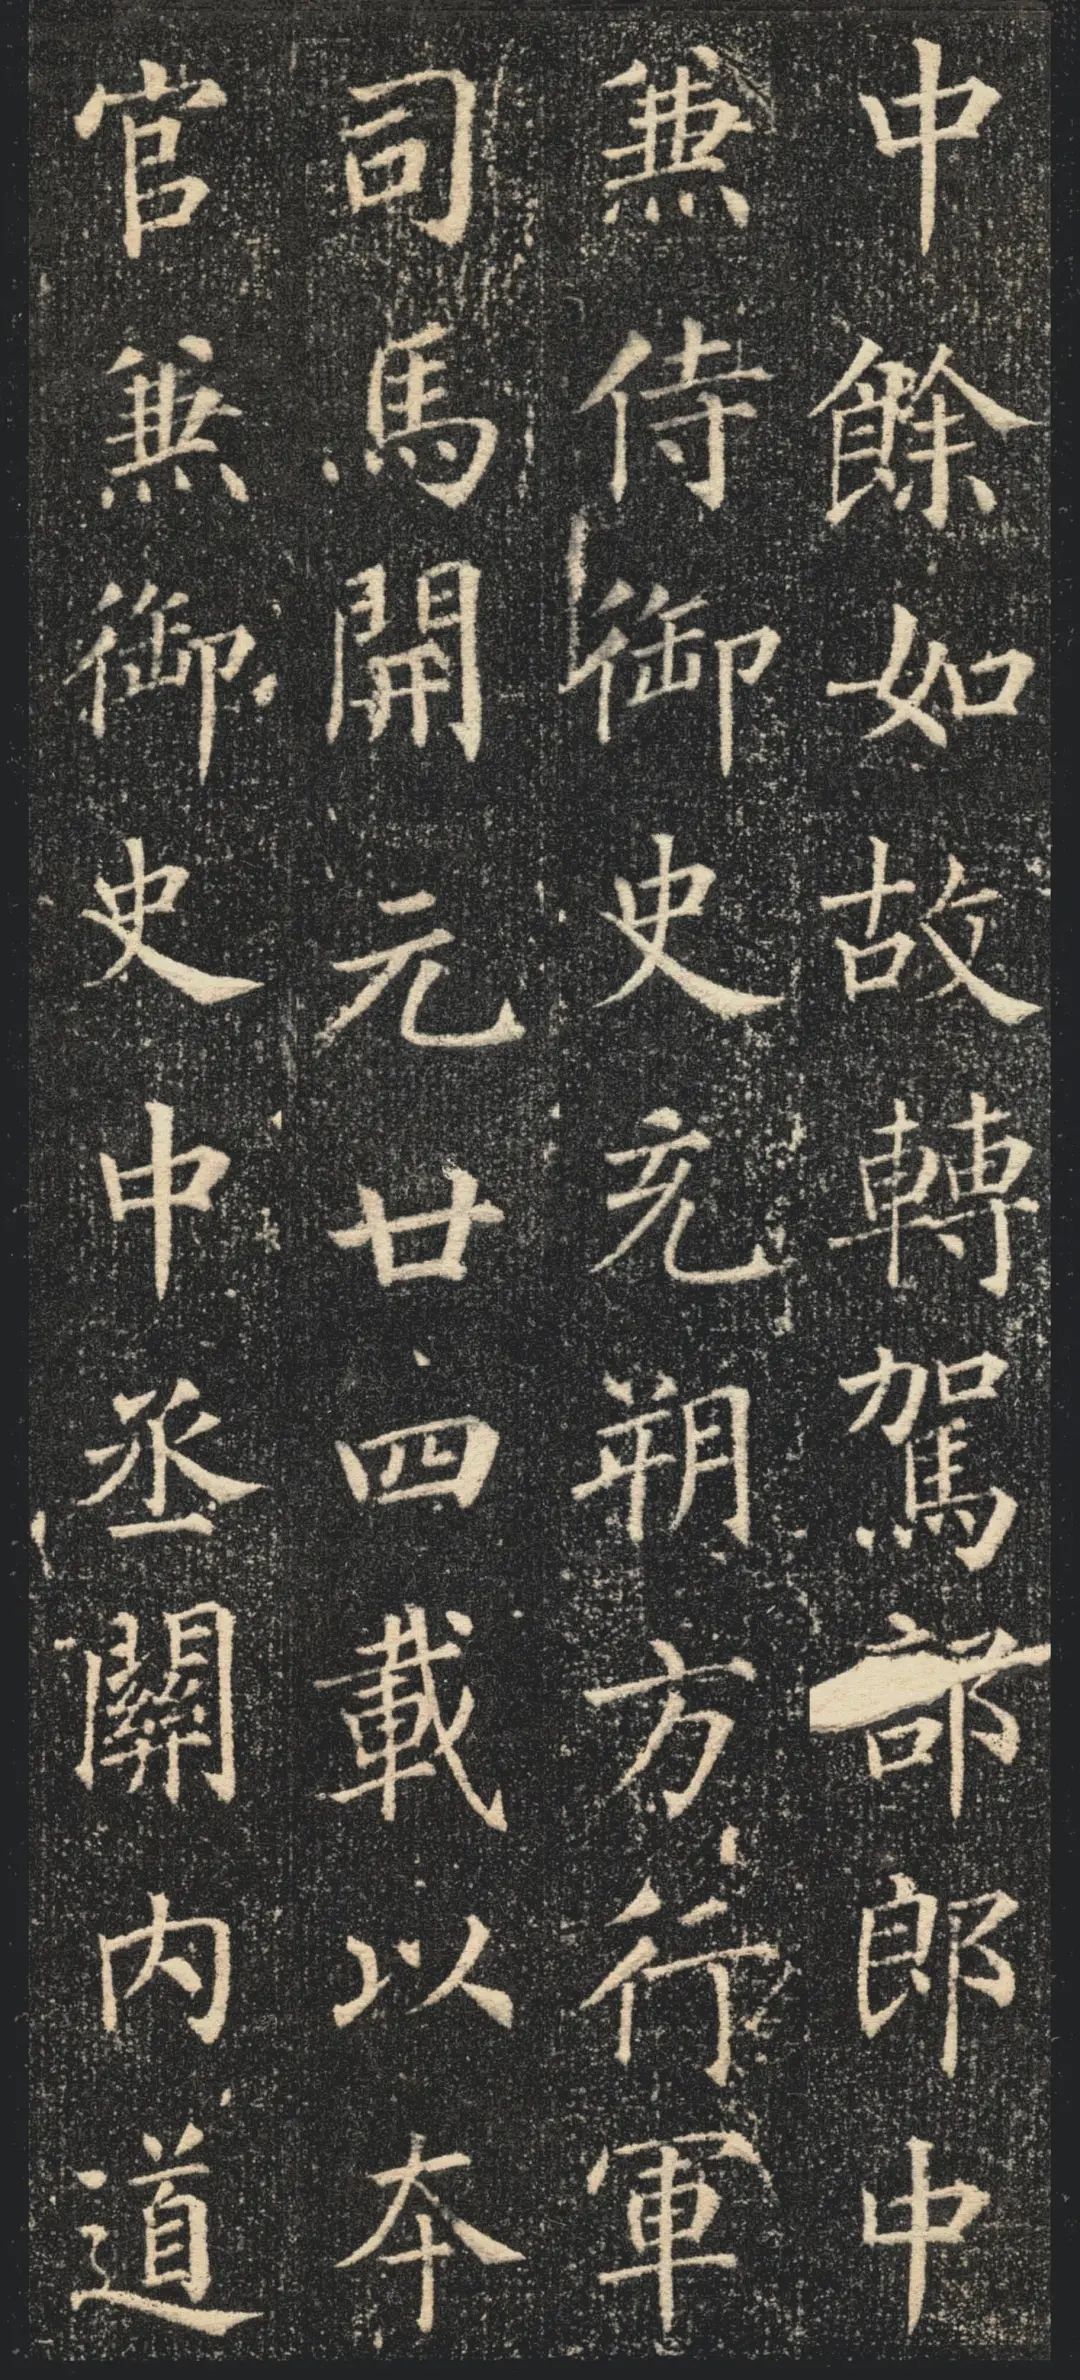 中餘如故轉駕部郎中
兼侍御史充朔方行軍
司馬開元廿四載以本
官兼御史中丞關内道